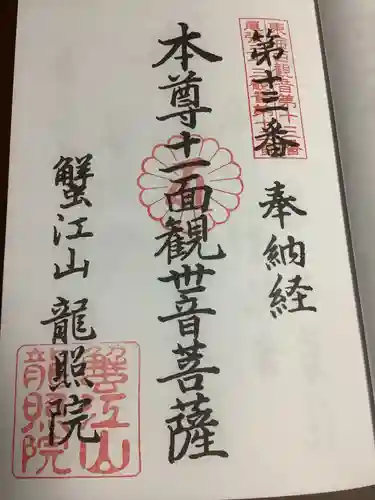 第十三番
奉納経
本尊十一面観世音菩薩
蟹江山 龍照院
蟹江山
龍照院